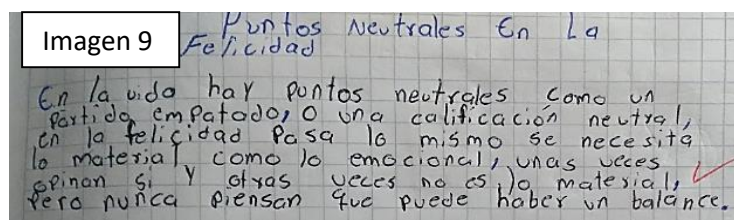 Imagen 9
Puntos Neutrales En La
Felicidad
En la vida hay puntos neutrales como un
partido empatado, o una calificación neutral,
en la felicidad pasa lo mismo se necesita
lo material como lo emocional, unas veces
opinan si y otras veces no es lo material,
pero nunca piensan que puede haber un balance.